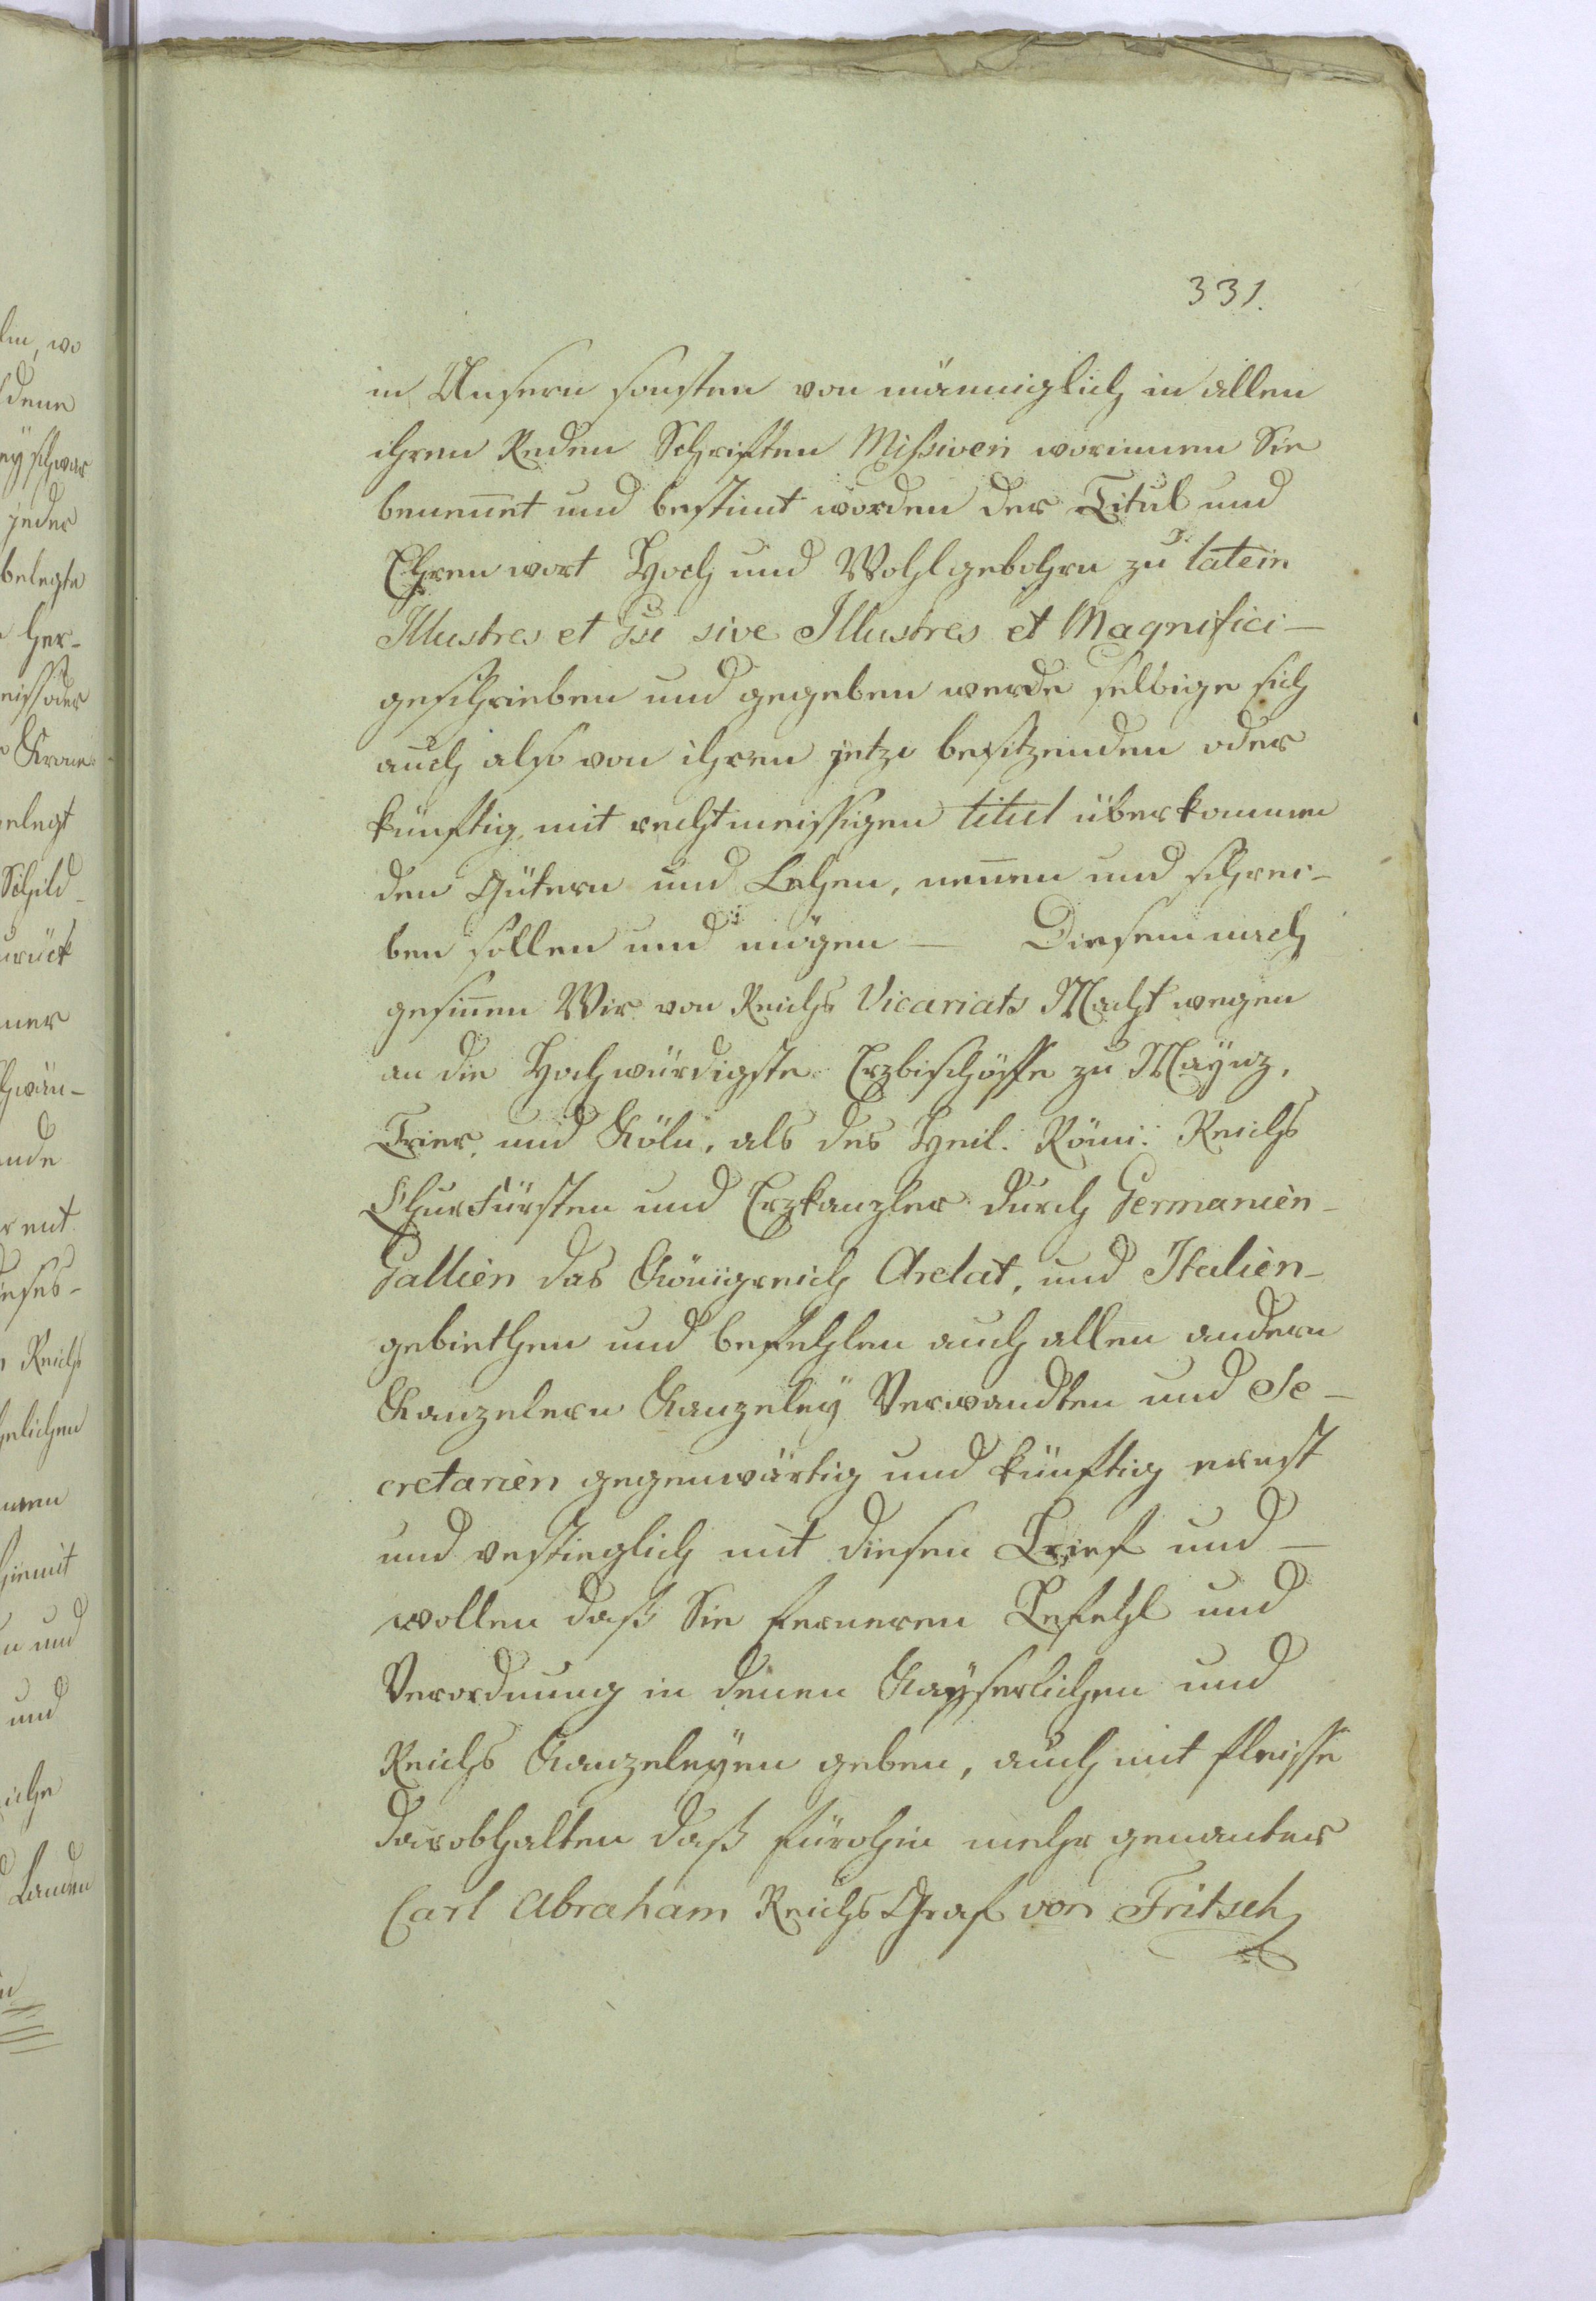 331.
in Unsern sonsten von männiglich in allen
ihren Reden Schriften Missiven worinnen Sie
beneñet und bestimt worden der Titul und
Ehrenwort Hoch und Wohlgebohrn zu latein
Illustres et gsi sive Illustres et Magnifici –
geschrieben und gegeben werde selbige sich
auch also von ihren jetzo besitzenden oder
künftig mit rechtmeissigen titul überkommen
den Gütern und Lehen, neñen und schrei-
ben sollen und mögen – Diesemnach
gesiñen Wir von Reichs Vicariats Macht wegen
an die Hochwürdigste Erzbischöffe zu Maynz,
Trier, und Köln, als des Heil. Römi: Reichs
Churfürsten und Erzkanzler durch Germanien-
Gallien das Königreich Arelat, und Italien-
gebiethen und befehlen auch allen andern
Kanzelern Kanzeley Verwandten und Se-
cretarien gegenwärtig und künftig ernst
und vestieglich mit diesen Brief und –
wollen daß Sie ferneren Befehl und
Verordnung in denen Kayserlichen und
Reichs Kanzeleyen geben, auch mit fleisse
darobhalten daß fürohin mehr genanter
Carl Abraham Reichs Graf von Fritsch
lin, wo
dene
ey schwar
jeder
belegte
Her-
Krone
elegt
Schild
urück
ner
ende
ieses-
Reichs
helichen
hiemit
n und
und
Landen